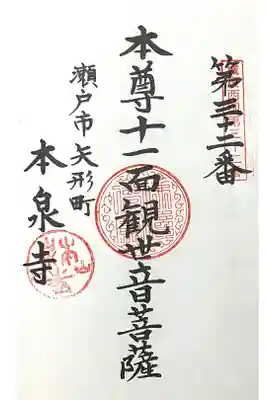 第三十二番
本尊十一面観世音菩薩
瀬戸市矢形町
本泉寺